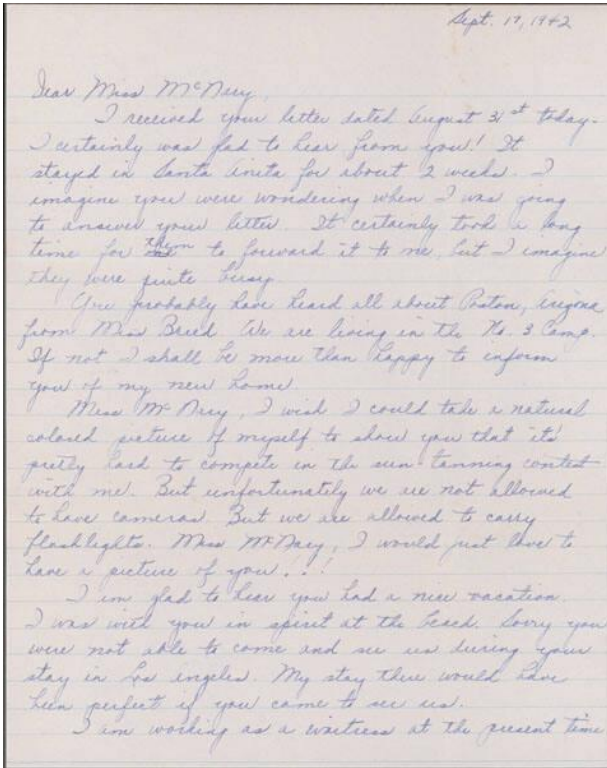 Sept. 17, 1942
Dear Miss McNary,
I received your letter dated August 31st today.
I certainly was glad to hear from you! It
stayed in Santa Anita for about 2 weeks. I
imagine you were wondering when I was going
to answer your letter. It certainly took a long
time for them to forward it to me, but I imagine
they were quite busy.
You probably have heard all about Poston, Arizona
from Miss Breed. We are living in the No. 3 Camp.
If not I shall be more than happy to inform
you of my new home.
Miss McNary, I wish I could take a natural
colored picture of myself to show you that it's
pretty hard to compete in the sun-tanning contest
with me. But unfortunately we are not allowed
to have cameras. But we are allowed to carry
flashlights. Miss McNary, I would just love to
have a picture of you . . !
I am glad to hear you had a nice vacation.
I was with you in spirit at the beach. Sorry you
were not able to come and see us during your
stay in Los Angeles. My stay there would have
been perfect if you came to see us.
I am working as a waitress at the present time